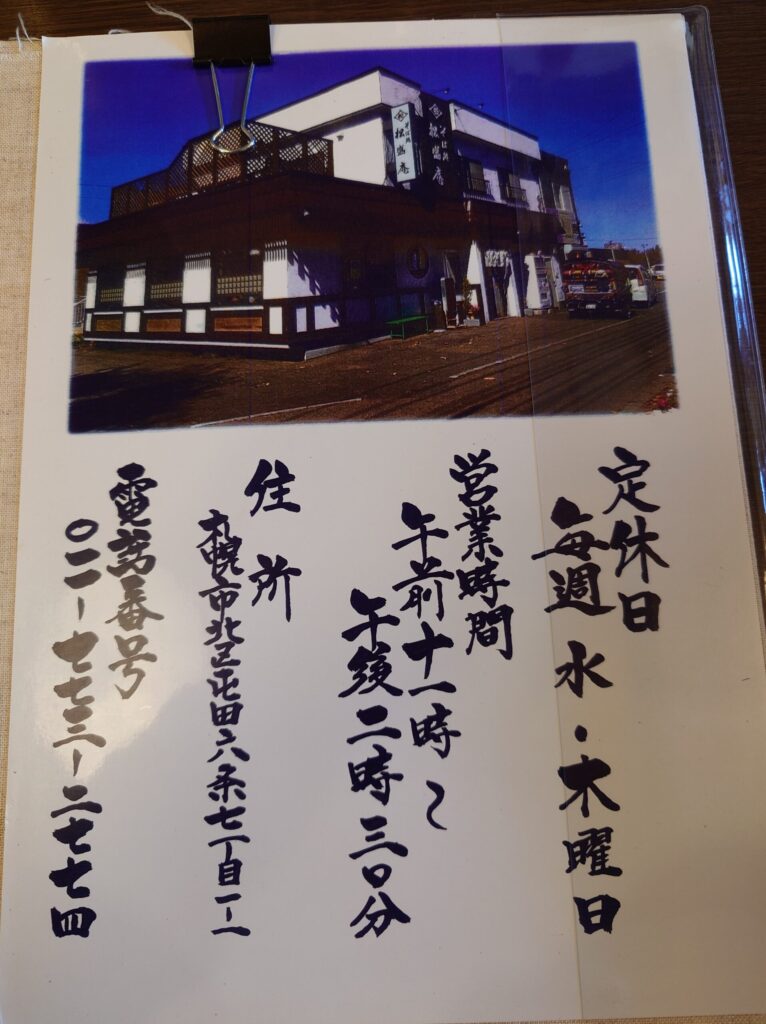 そば処
定休日
毎週 水・木曜日
営業時間
午前十一時〜
午後二時三〇分
住所
札幌市北区屯田六条七丁目一-一
電話番号
〇一一-七七三-二七七四